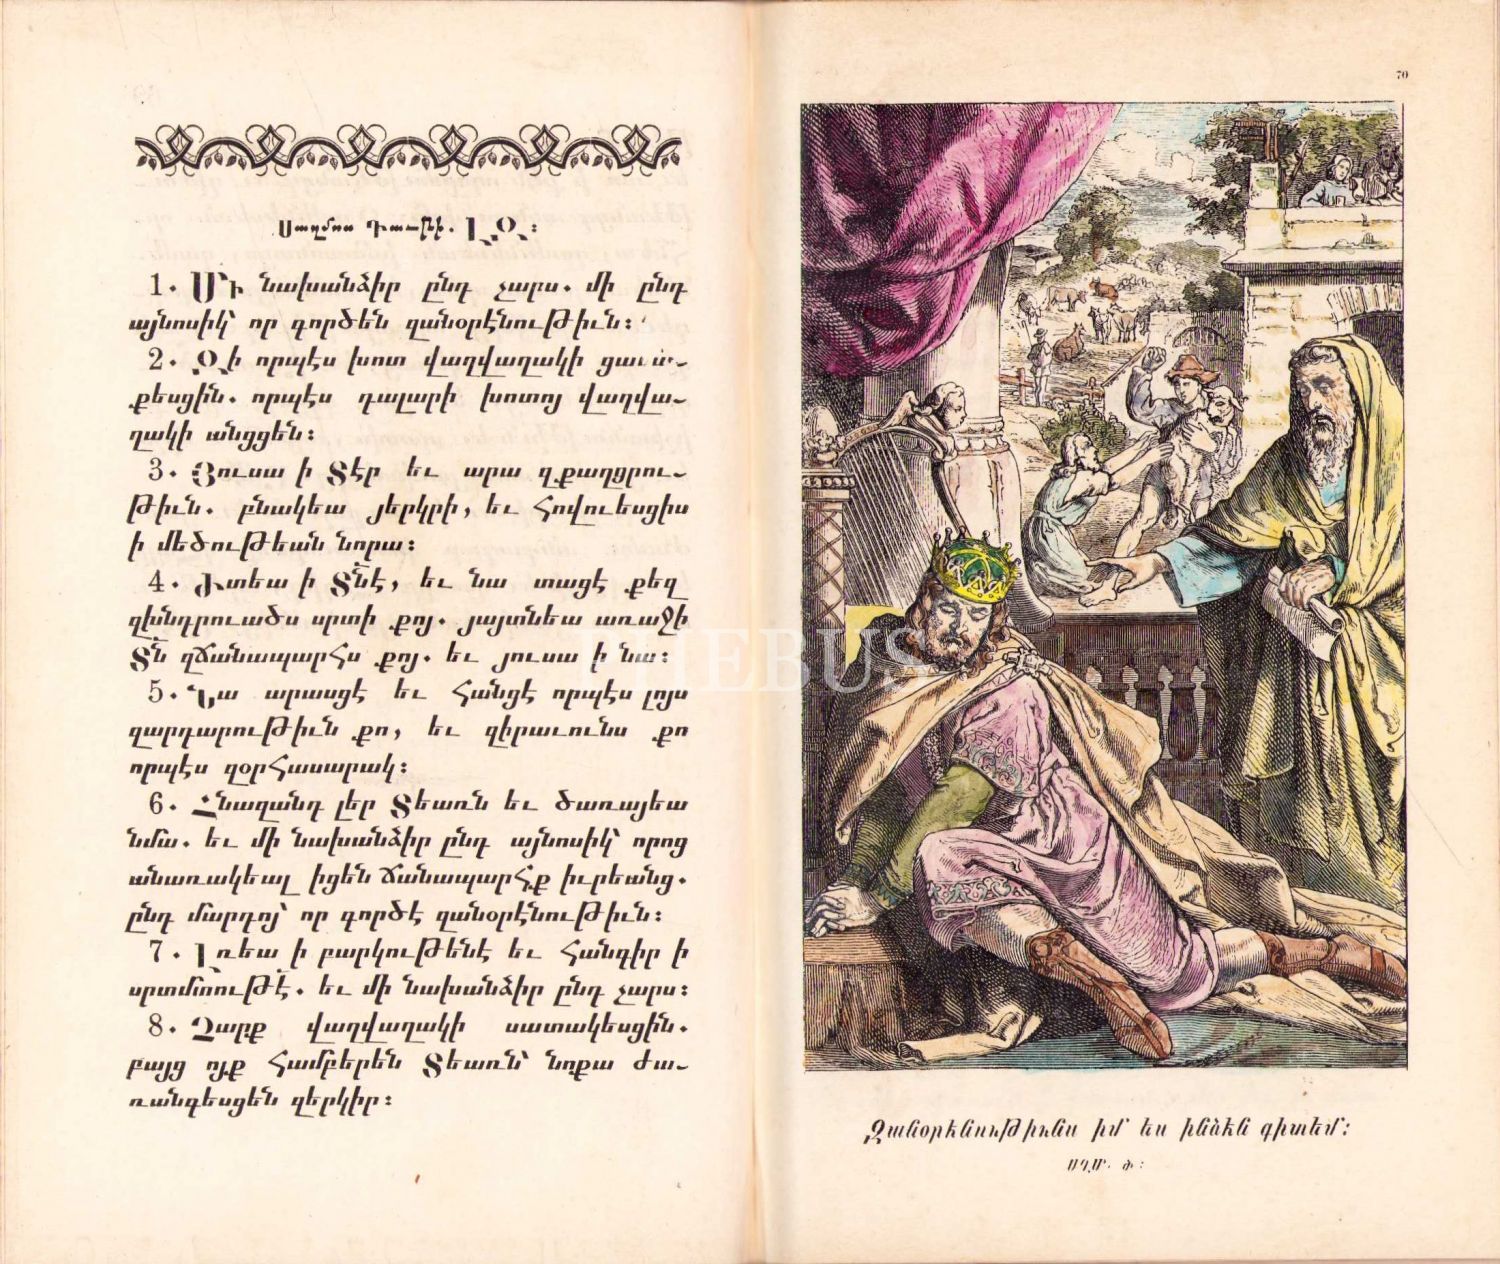 Սաղմոս Դաւթի. ԼԶ։
1. Մի նախանձիր ընդ չարս. մի ընդ
այնոսիկ՝ որ գործեն զանօրէնութիւն։
2. Զի որպէս խոտ վաղվաղակի ցամա-
քեսցին. որպէս դալարի խոտոյ վաղվա-
ղակի անցցեն։
3. Յուսա ի Տէր եւ արա զքաղցրու-
թիւն. բնակեա յերկրի, եւ հովուեսցիս
ի մեծութեան նորա։
4. Խտեա ի Տնէ, եւ նա տացէ քեզ
զխնդրուածս սրտի քոյ. յայտնեա առաջի
Տն զճանապարհս քոյ. եւ յուսա ի նա։
5. Նա արասցէ եւ հանցէ որպէս լոյս
զարդարութիւն քո, եւ զիրաւունս քո
որպէս զօրհասարակ։
6. Հնազանդ լեր Տեառն եւ ծառայեա
նմա. եւ մի նախանձիր ընդ այնոսիկ՝ որոց
անառակեալ իցեն ճանապարհք իւրեանց.
ընդ մարդոյ՝ որ գործէ զանօրէնութիւն։
7. Լռեա ի բարկութենէ եւ հանգիր ի
սրտմտութէ. եւ մի նախանձիր ընդ չարս։
8. Չարք վաղվաղակի սատակեսցին.
բայց ոյք համբերեն Տեառն՝ նոքա ժա-
ռանգեսցեն զերկիր։
70
Զանօրէնութիւնս իմ ես ինձէն գիտեմ։
ՍՂՄ. Ծ։
PHEBUS